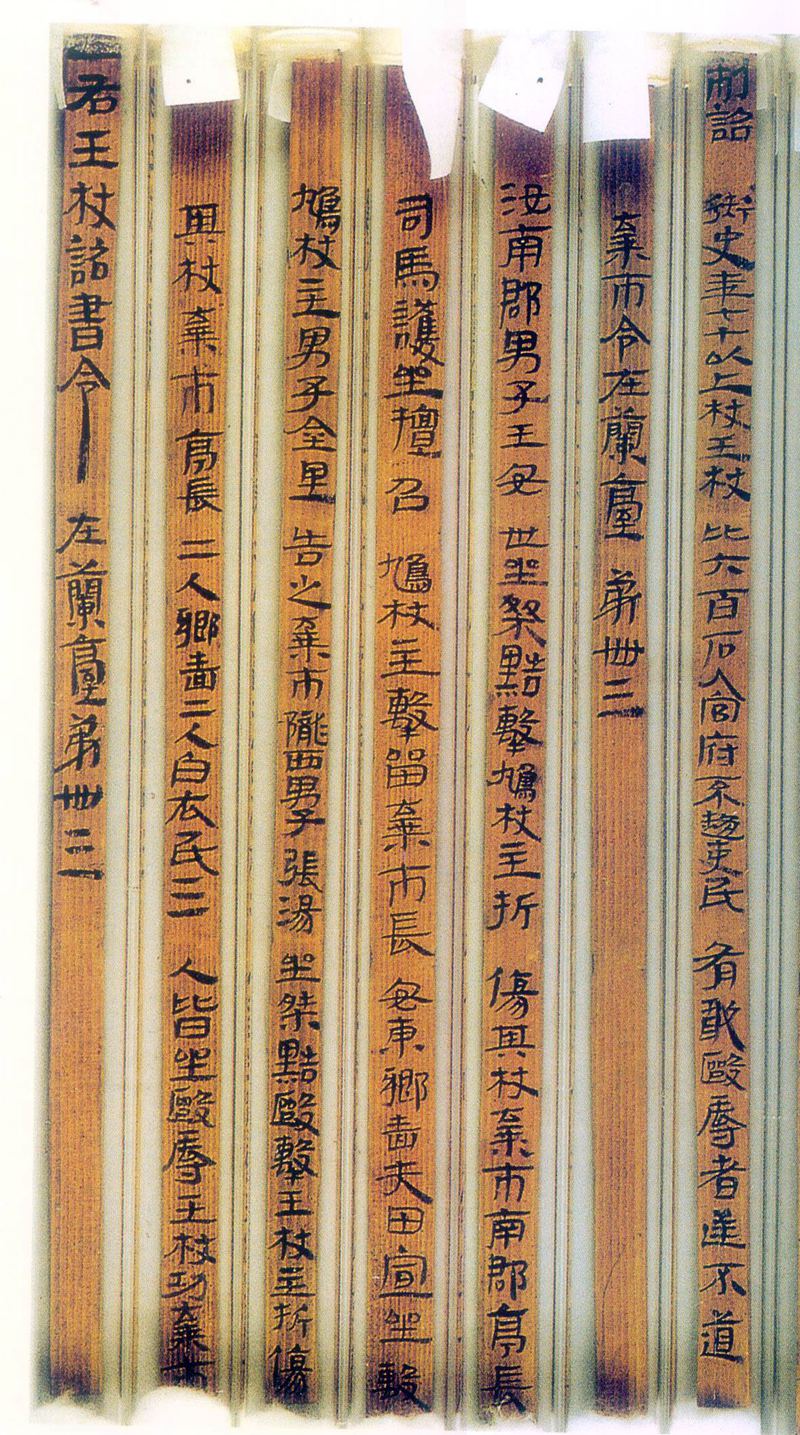 制詔 御史年七十以上杖王杖 比六百石入官府不趨吏民 有敢毆辱者逆不道
棄市令在蘭臺 弟卌三
汝南郡男子王安 世坐桀黠擊鳩杖主折 傷其杖棄市南郡亭長
司馬護坐擅 召 鳩杖主擊留棄市長 安東鄉嗇夫田宣坐毄
鳩杖主男子金里 告之棄市隴西男子 張湯 坐桀黠毆擊王杖主折傷
其杖棄市亭長 二人鄉嗇二人白衣民三 人皆坐毆辱王杖功棄市
右王杖詔書令 在蘭臺弟卌三